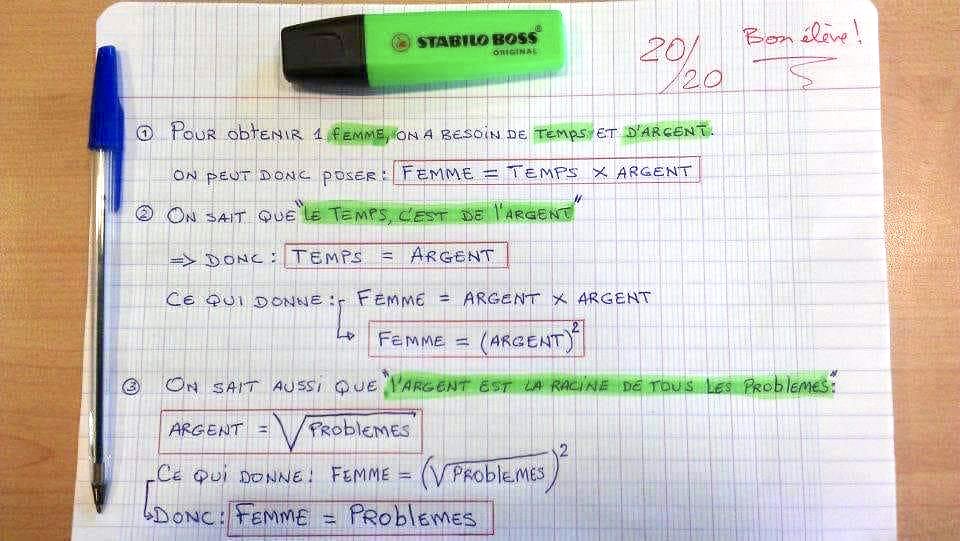 STABILO BOSS
ORIGINAL
20/20
Bon élève!
① POUR ObTENIR 1 fEMME, ON A BESOIN DE TEMPS ET D'ARGENT.
ON PEUT DONC POSER: FEMME = TEMPS X ARGENT
② ON SAIT QUE "LE TEMPS, C'EST DE l'ARGENT"
=> DONC: TEMPS = ARGENT
CE QUI DONNE: FEMME = ARGENT X ARGENT
FEMME = (ARGENT)²
③ ON SAIT AUSSI QUE "l'ARGENT EST LA RACINE DE TOUS LES PROblEMES":
ARGENT = √PRObLEMES
CE QUI DONNE: FEMME = (√PRObLEMES)²
DONC: FEMME = PROBLEMES